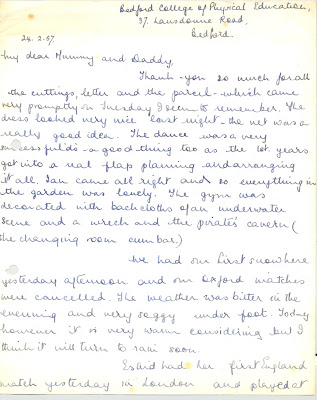 Bedford College of Physical Education,
37. Lansdowne Road,
Bedford.
24. 2. 57.
My dear Mummy and Daddy,
Thank-you so much for all
the cuttings, letter and the parcel - which came
very promptly on Tuesday I seem to remember. The
dress looked very nice last night - the net was a
really good idea. The dance was a very
successful do - a good thing too as the 1st. years
got into a real flap planning and arranging
it all. Ian came all right and so everything in
the garden was lovely. The gym was
decorated with backcloths of an underwater
scene and a wreck and the pirate's cavern (
the changing room cum bar.)
We had our first snow here
yesterday afternoon and our Oxford matches
were cancelled. The weather was bitter in the
evening and very soggy under foot. Today
however it is very warm considering but I
think it will turn to rain soon.
had her first England
match yesterday in London and played at